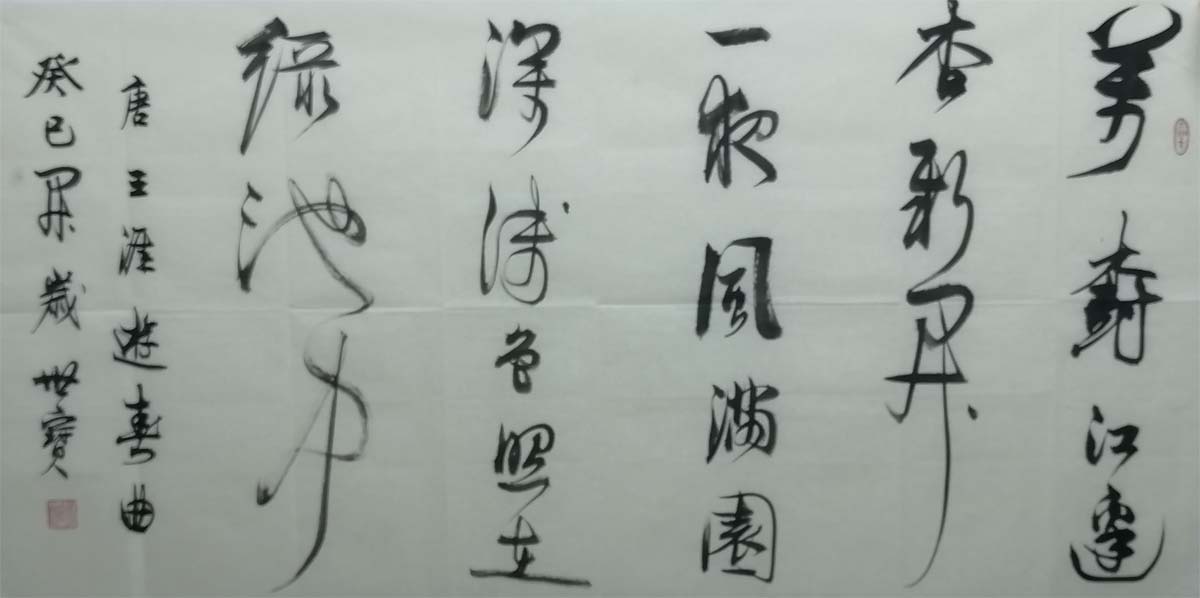 萬樹江邊
杏新開
一夜風滿園
深淺色照在
綠池中
唐王涯遊春曲
癸巳開歲世寶